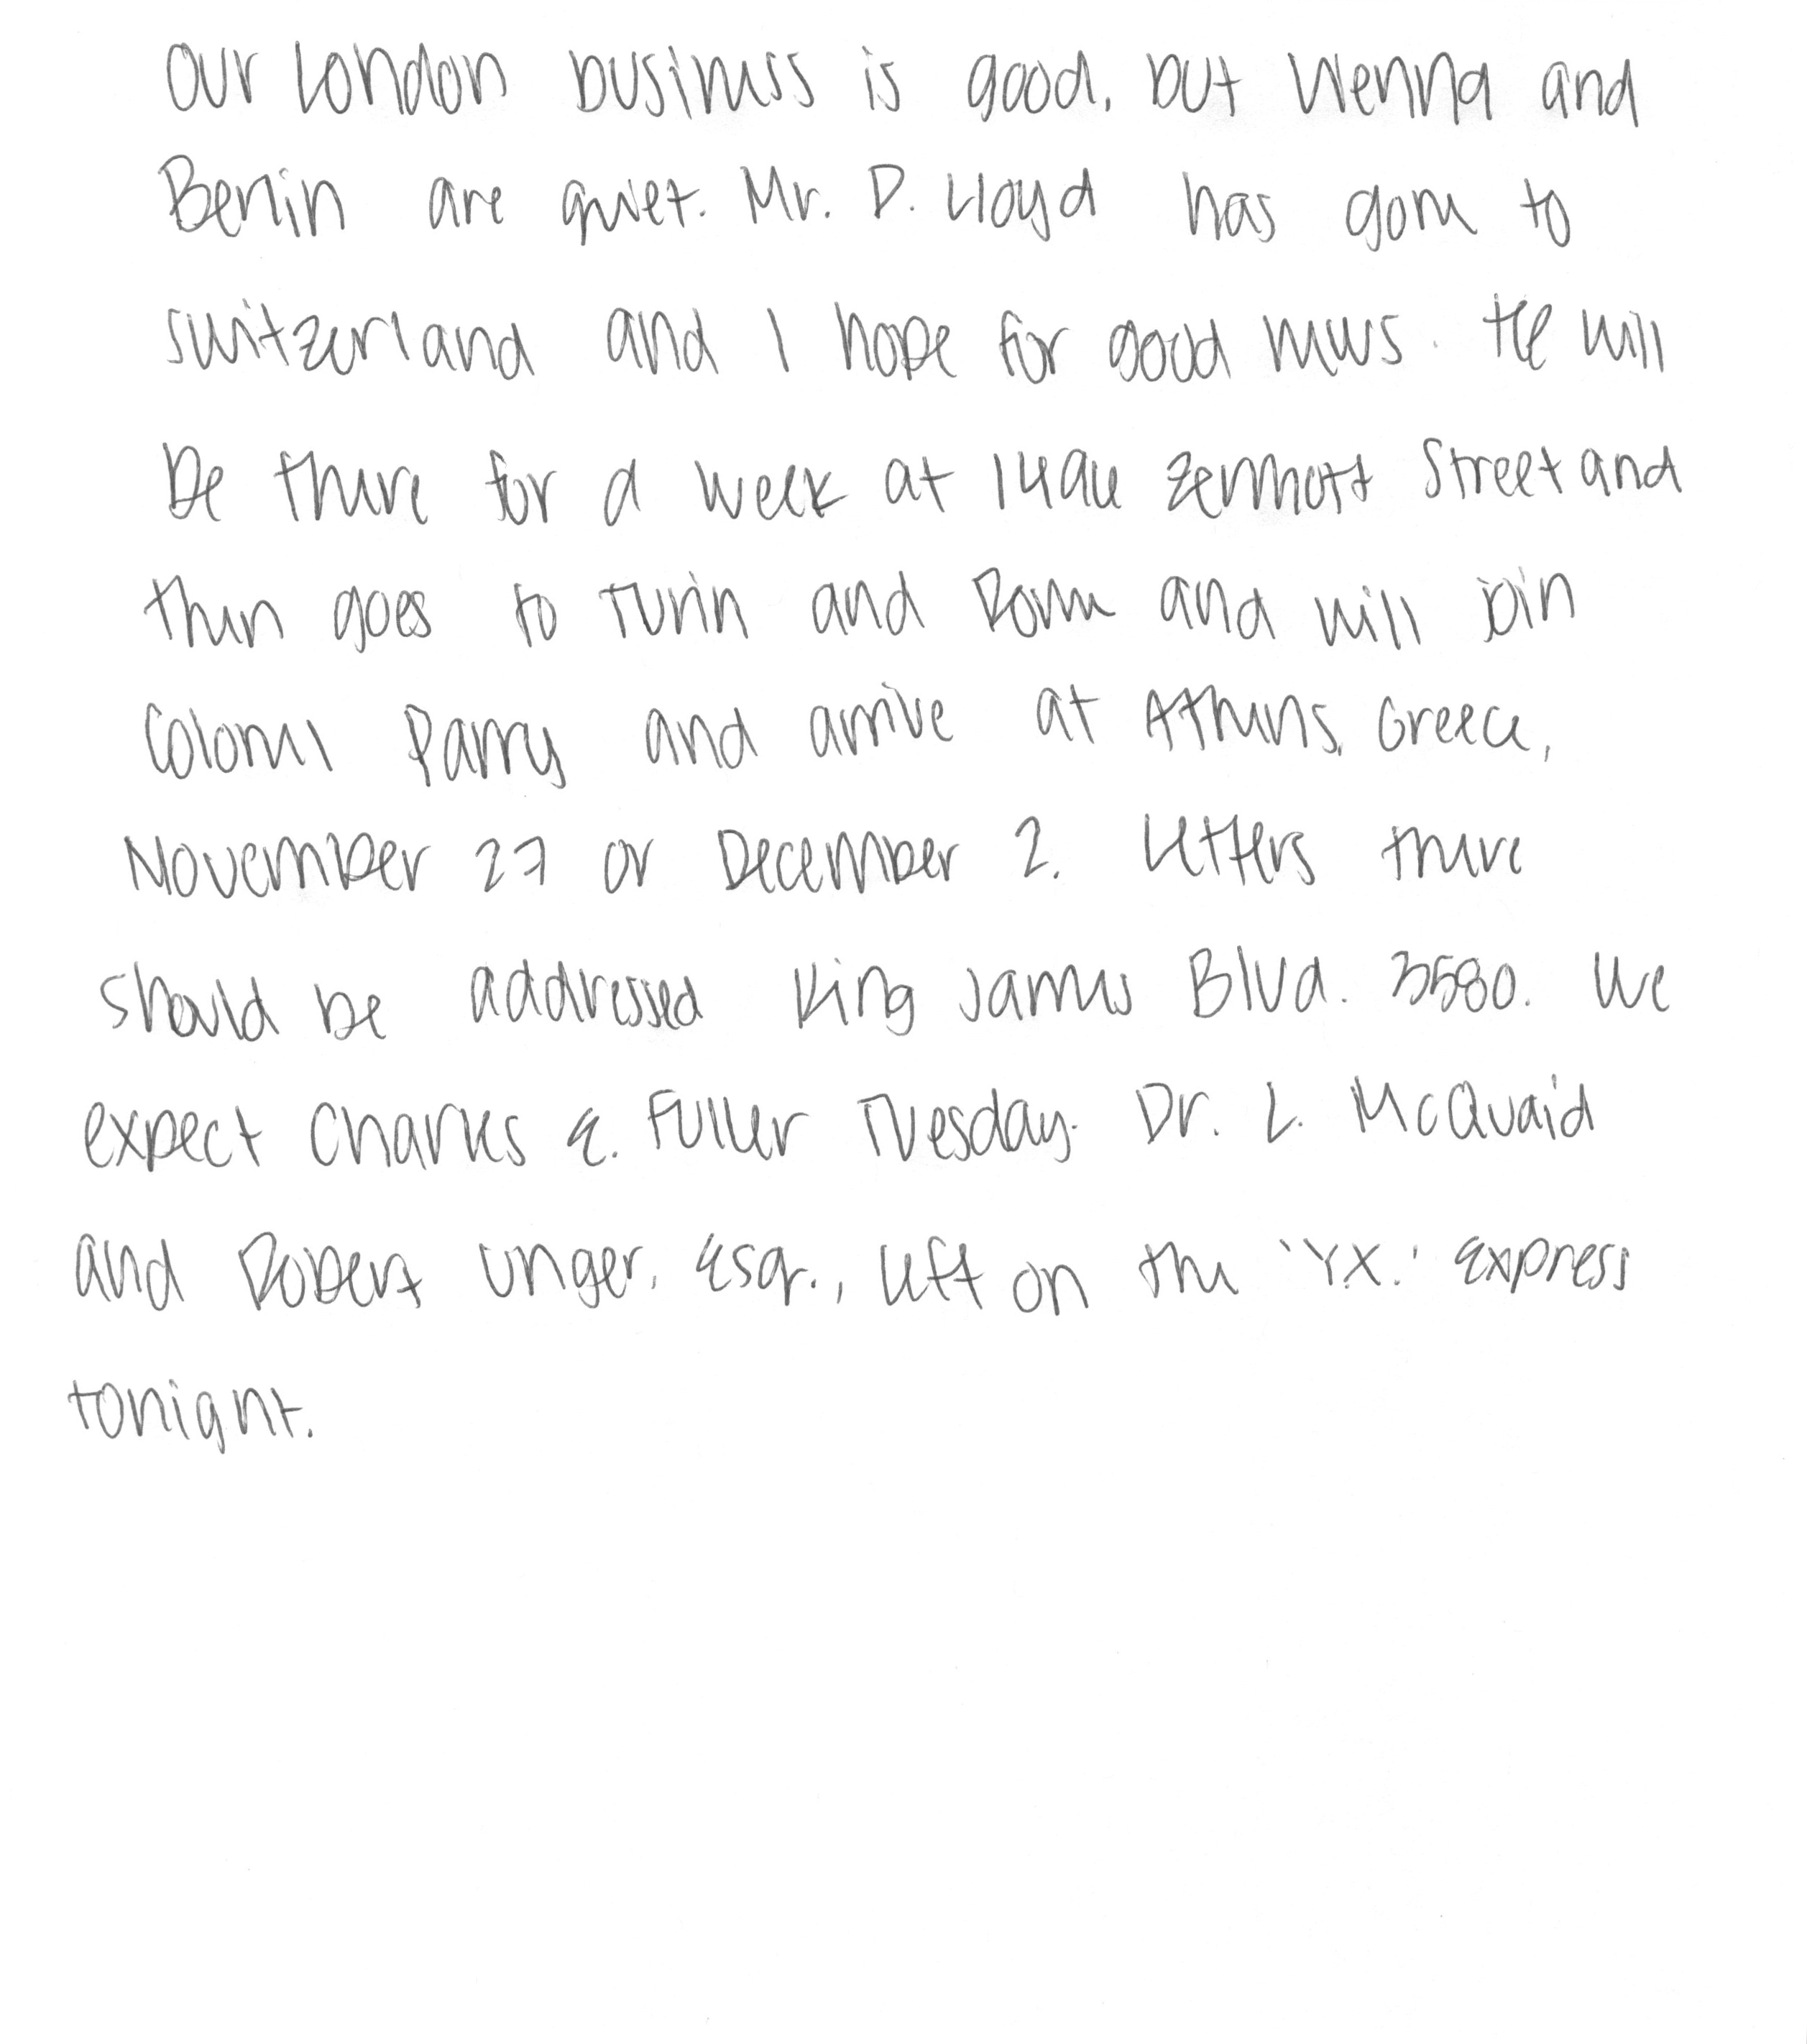 Our London business is good, but Vienna and
Berlin are quiet. Mr. D. Lloyd has gone to
Switzerland and I hope for good news. He will
be there for a week at 1496 Zermott Street and
then goes to Turin and Rome and will join
Colonel Parry and arrive at Athens, Greece,
November 27 or December 2. Letters there
should be addressed King James Blvd. 3580. We
expect Charles E. Fuller Tuesday. Dr. L. McQuaid
and Robert Unger, Esq., left on the 'Y.X.' Express
tonight.